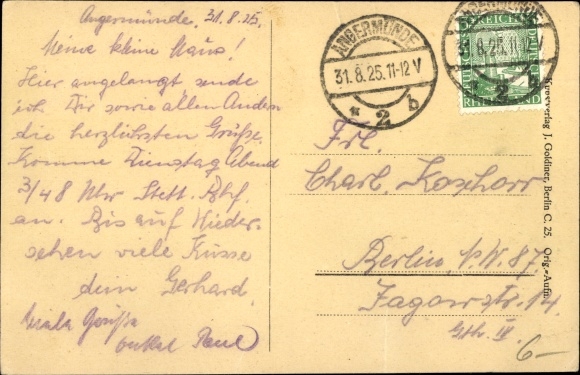 Angermünde, 31.8.25.
Meine kleine Maus!
Hier angelangt sende
ich Dir sowie allen Andern
die herzlichsten Grüße.
Komme Dienstag Abend
3/48 Uhr Stett. Bhf.
an. Bis auf Wieder-
sehen viele Küsse
dein Gerhard.
Viele Grüße
onkel Paul
ANGERMÜNDE
31.8.25.11-12V
* 2 b
ANGERMÜNDE
31.8.25.11-12V
* 2 b
Frl.
Charl. Koschorr
Berlin, N.W. 87.
Jagowstr. 14.
Gth. IV
6-
Kroyverlag J. Goldiner, Berlin C. 25. Orig.-Aufn.